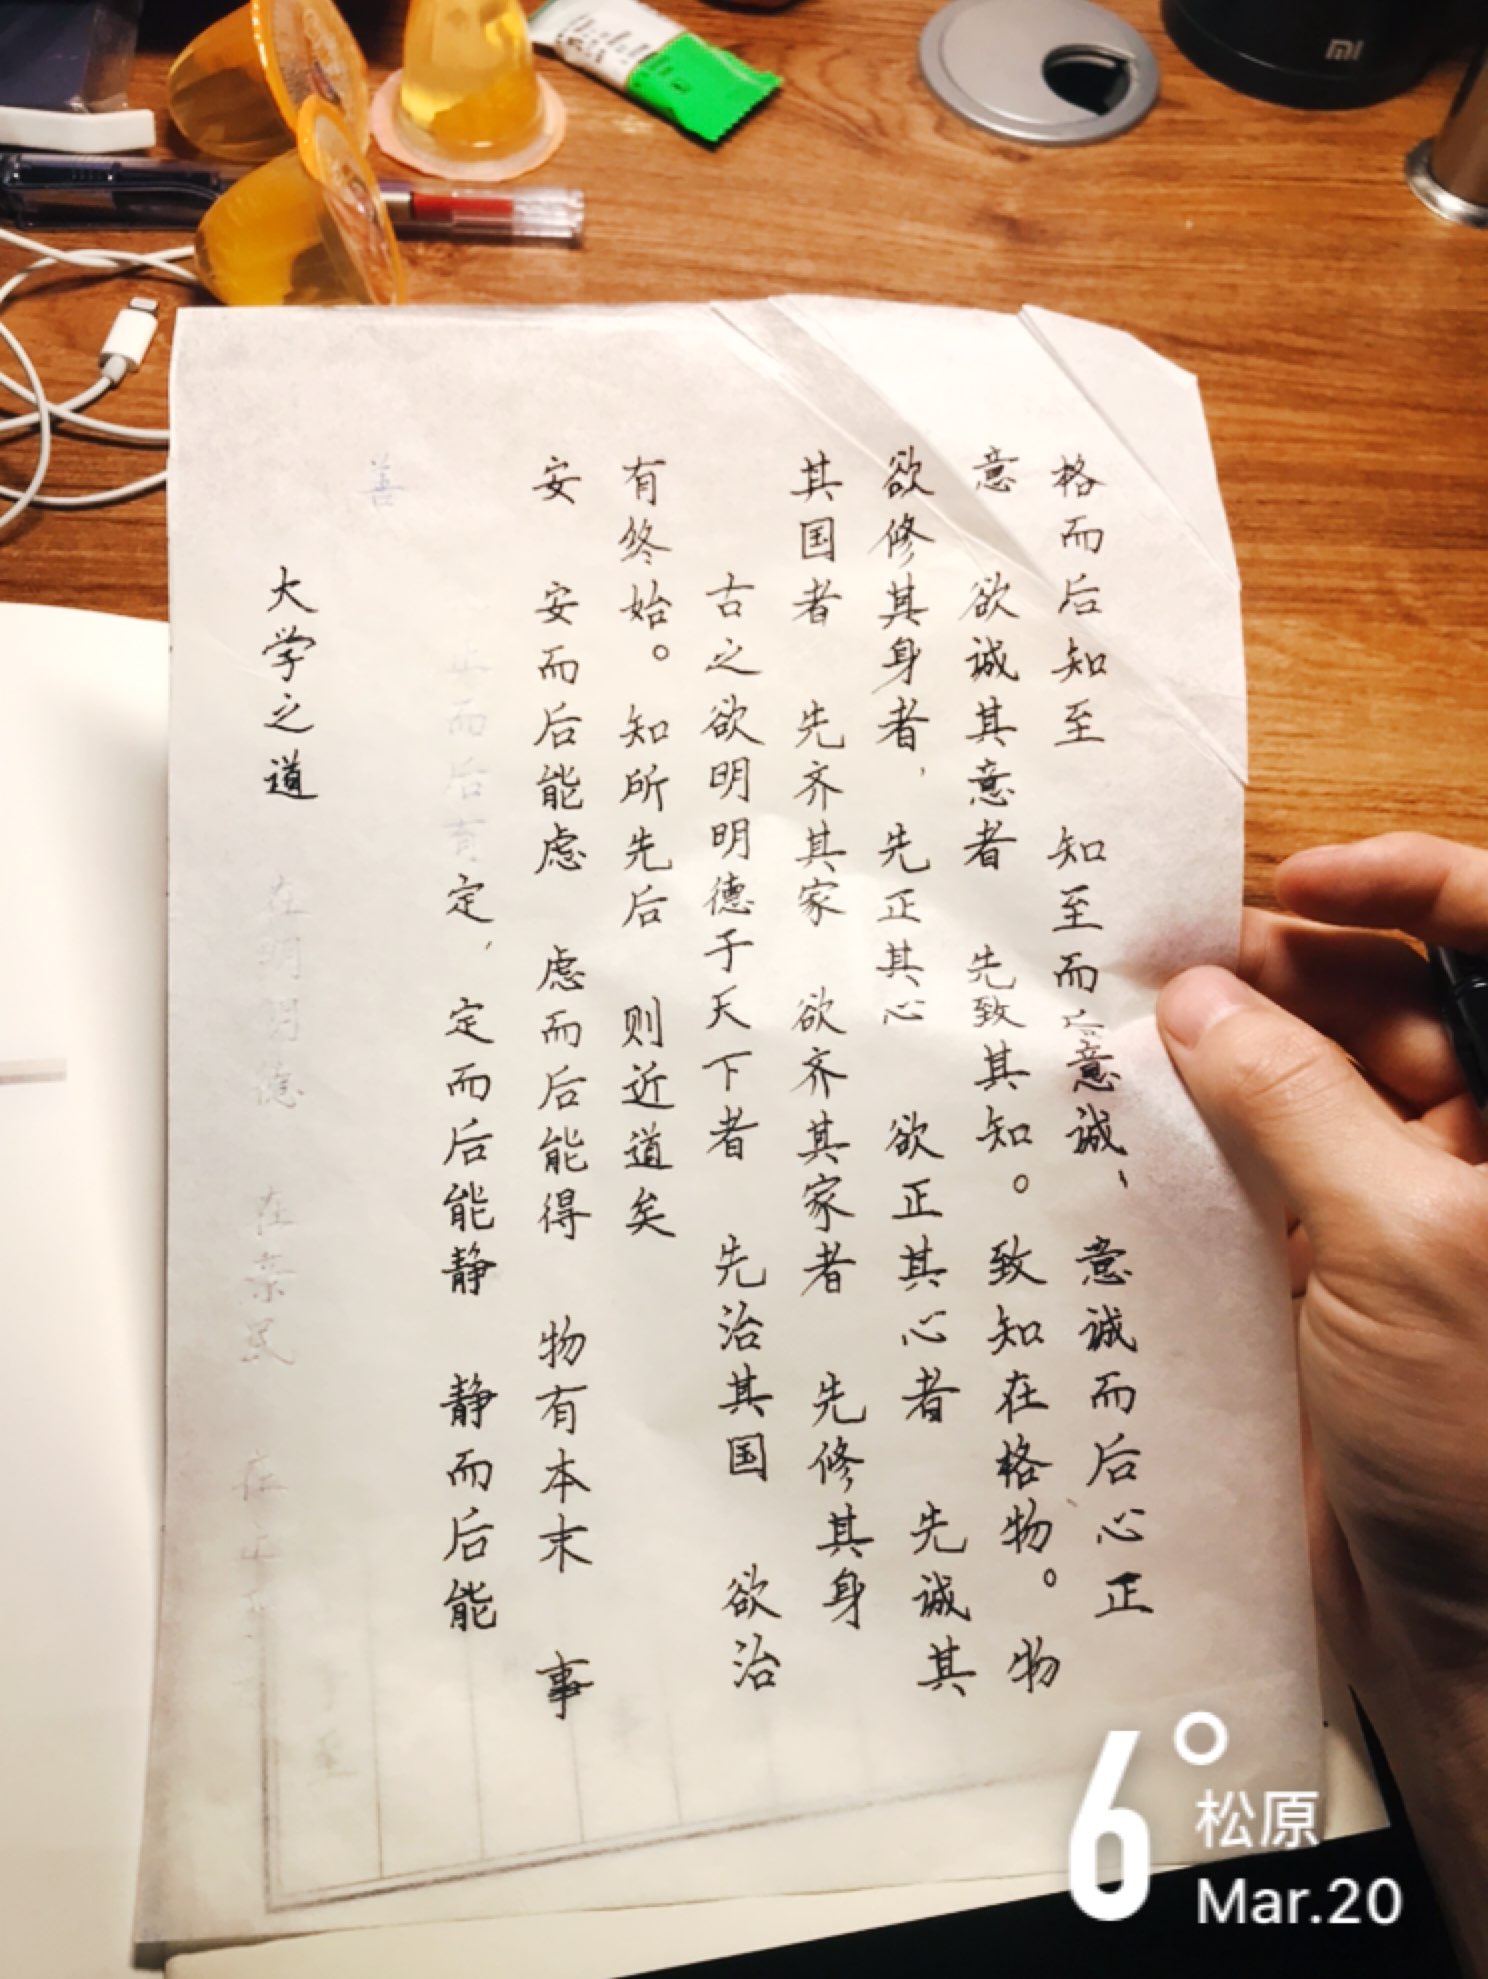 大学之道 在明明德 在亲民 在止
善
止而后有定，定而后能静 静而后能
安 安而后能虑 虑而后能得 物有本末 事
有终始。知所先后 则近道矣
古之欲明明德于天下者 先治其国 欲治
其国者 先齐其家 欲齐其家者 先修其身
欲修其身者，先正其心 欲正其心者 先诚其
意 欲诚其意者 先致其知。致知在格物。物
格而后知至 知至而后意诚、意诚而后心正
mi
6°
松原
Mar.20